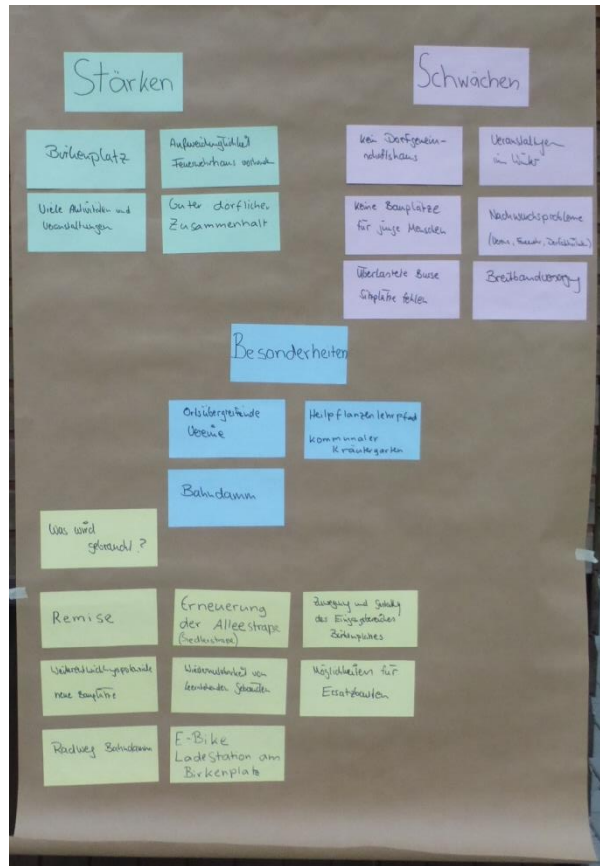 Stärken
Birkenplatz
Feuerwehrhaus
Viele Aktivitäten und
Veranstaltungen
Guter dörflicher
Zusammenhalt
Schwächen
kein Dorfgemein-
schaftshaus
Veranstaltungen
im Winter
keine Bauplätze
für junge Menschen
Nachwuchsprobleme
Überlastete Busse
Sitzplätze fehlen
Breitbandversorgung
Besonderheiten
Ortsübergreifende
Vereine
Heilpflanzenlehrpfad
kommunaler
Kräutergarten
Bahndamm
Was wird
gebraucht?
Remise
Erneuerung
der Alleestraße
(Siedlerstraße)
Zuwegung und
des Eingangsbereiches
Birkenplatzes
neue Bauplätze
leerstehenden Gebäuden
Möglichkeiten für
Ersatzbauten
Radweg Bahndamm
E-Bike
LadeStation am
Birkenplatz